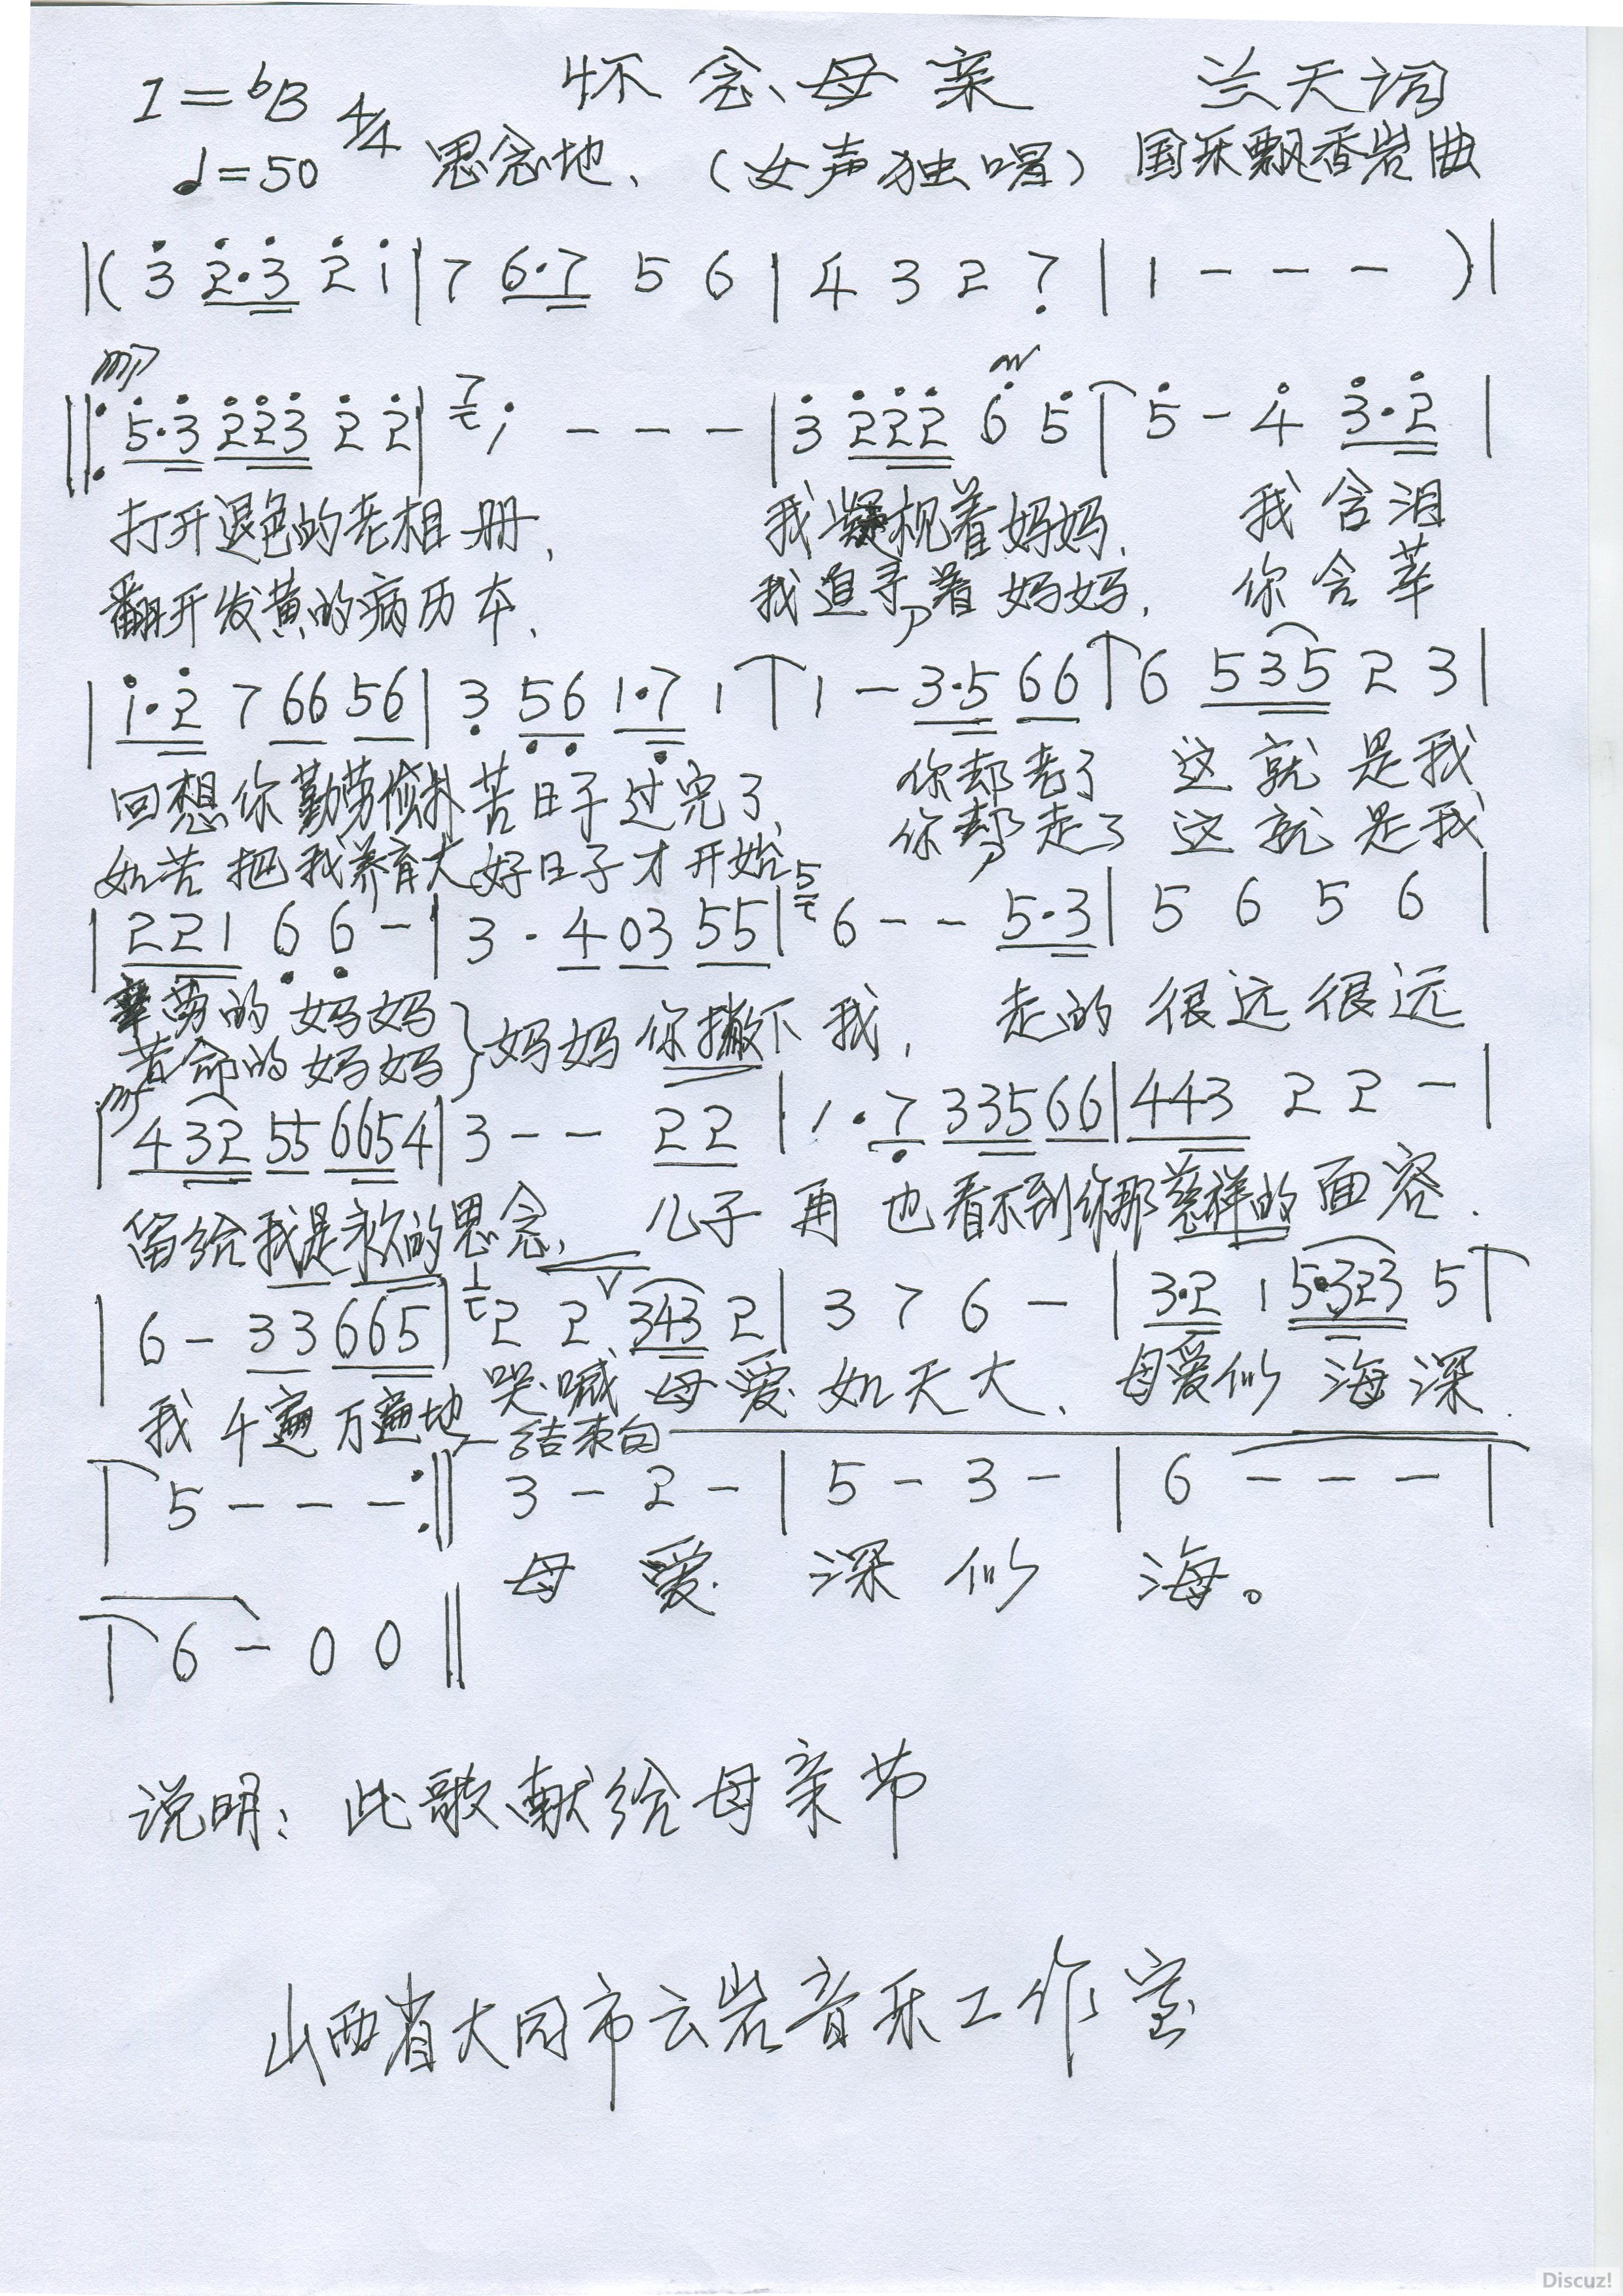 1=ᵇB 4/4 怀念母亲 兰天词
♩=50 思念地、(女声独唱) 国乐飘香岩曲
|( 3̇ 2̇·3̇ 2̇ 1̇ | 7 6·7 5 6 | 4 3 2 7̣ | 1 - - - )|
mp
‖: 5̇·3̇ 2̇2̇3̇ 2̇ 2̇ | 7 1̇ - - - | 3̇ 2̇2̇2̇ 6̇ 5̇ | 5̇ - 4̇ 3̇·2̇ |
打开退色的老相册、 我凝视着妈妈. 我含泪
翻开发黄的病历本、 我追寻着妈妈, 你含莘
| 1̇·2̇ 7 66 56 | 3̣ 5̣6̣ 1·7̣ 1 | 1 - 3·5 66 | 6 535 2 3 |
回想你勤劳俭朴苦日子过完了、 你却老了 这就是我
如苦把我养育大好日子才开始 你却走了 这就是我
| 221 6̣ 6̣ - | 3 · 4 03 55 | 5 6 - - 5·3 | 5 6 5 6 |
辜劳的妈妈
苦命的妈妈 } 妈妈你撇下我, 走的很远很远
mf
| 432 55 6654 | 3 - - 22 | 1 · 7̣ 335 66 | 443 2 2 - |
留给我是永久的思念、 儿子再也看不到你那慈祥的面容.
| 6 - 33 665 | 1 2 2 ∨ 343 2 | 3 7 6 - | 3·2 1 5·323 5 |
我千遍万遍地 哭喊母爱如天大、 母爱似海深.
结束句
| 5 - - - :‖ 3 - 2 - | 5 - 3 - | 6 - - - |
母爱深似海。
| 6 - 0 0 ‖
说明: 此歌献给母亲节
山西省大同市云岩音乐工作室
Discuz!